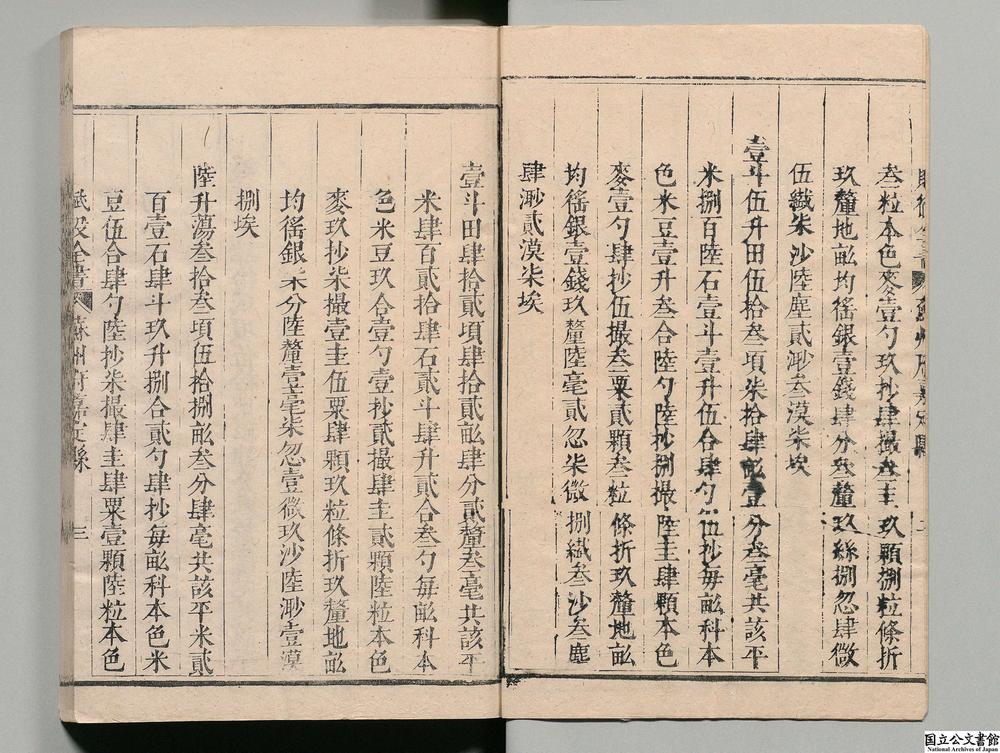 叁粒本色麥壹勺玖抄肆撮叁圭玖顆捌粒條折
玖釐地畝均徭銀壹錢肆分叁釐玖絲捌忽肆微
伍纖柒沙陸塵貳渺叁漠柒埃
壹斗伍升田伍拾叁項柒拾肆畝壹分叁毫共該平
米捌百陸石壹斗壹升伍合肆勺伍抄每畝科本
色米豆壹升叁合陸勺陸抄捌撮陸圭肆顆本色
麥壹勺肆抄伍撮叁粟貳顆叁粒條折玖釐地畝
均徭銀壹錢玖釐陸毫貳忽柒微捌纖叁沙叁塵
肆渺貳漠柒埃
壹斗田肆拾貳項肆拾貳畝肆分貳釐叁毫共該平
米肆百貳拾肆石貳斗肆升貳合叁勺每畝科本
色米豆玖合壹勺壹抄貳撮肆圭貳顆陸粒本色
麥玖抄柒撮壹圭伍粟肆顆玖粒條折玖釐地畝
均徭銀柒分陸釐壹毫柒忽壹微玖沙陸渺壹漠
捌埃
陸升蕩叁拾叁項伍拾捌畝叁分肆毫共該平米貳
百壹石肆斗玖升捌合貳勺肆抄每畝科本色米
豆伍合肆勺陸抄柒撮肆圭肆粟壹顆陸粒本色
賦役全書 蘇州府嘉定縣 三
国立公文書館
National Archives of Japan